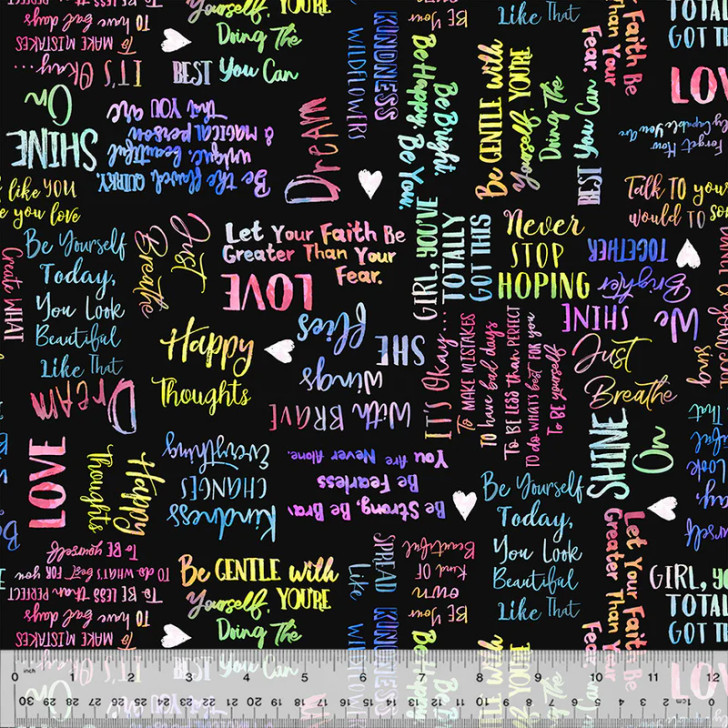 Yourself, YOU'RE
Doing The
BEST You Can
TO have bad days
TO MAKE MISTAKES
IT'S Okay...
SHINE
On
Be the flawed, QUIRKY,
unique, beautiful
& MAGICAL person
that YOU are
DREAM
WILDFLOWERS
KINDNESS
BE Your
Be Bright.
Be Happy. Be You.
Like That
Be GENTLE with
Yourself, YOU'RE
Doing The
BEST You Can
Faith Be
Than Your
Fear.
TOTALLY
GOT THIS
LOVE
Forget How
Talk TO your
would TO so
like YOU
e you love
Create WHAT
Be Yourself
Today,
You Look
Beautiful
Like That
Just
Breathe
Let Your Faith Be
Greater Than Your
Fear.
LOVE
GIRL, YOU'VE
TOTALLY
GOT THIS
Never
STOP
HOPING
We SHINE
Brighter
TOGETHER
Happy
Thoughts
SHE
flies
With BRAVE
Wings
IT'S Okay...
TO MAKE MISTAKES
TO have bad days
TO BE LESS than PERFECT
TO do WHAT'S best FOR you
TO BE yourself
Just
Breathe
sing
DREAM
LOVE
Happy
Thoughts
Kindness
CHANGES
Everything
Be Strong, Be Brave
Be Fearless
You Are Never Alone.
SHINE
On
Be Yourself
Today,
You Look
Beautiful
Like That
TO have bad days
TO MAKE MISTAKES
TO BE LESS than PERFECT
TO do WHAT'S best FOR you
TO BE yourself
IT'S Okay...
Be GENTLE with
Yourself, YOU'RE
Doing The
BEST You Can
SPREAD
KINDNESS
Like
WILDFLOWERS
BE Your
own
Kind OF
Beautiful
Let Your Faith Be
Greater Than Your
Fear.
GIRL, YO
TOTAL
GOT TH
LO
On
inch
0 1 2 3 4 5 6 7 8 9 10 11 12
30 29 28 27 26 25 24 23 22 21 20 19 18 17 16 15 14 13 12 11 10 9 8 7 6 5 4 3 2 1cm 0